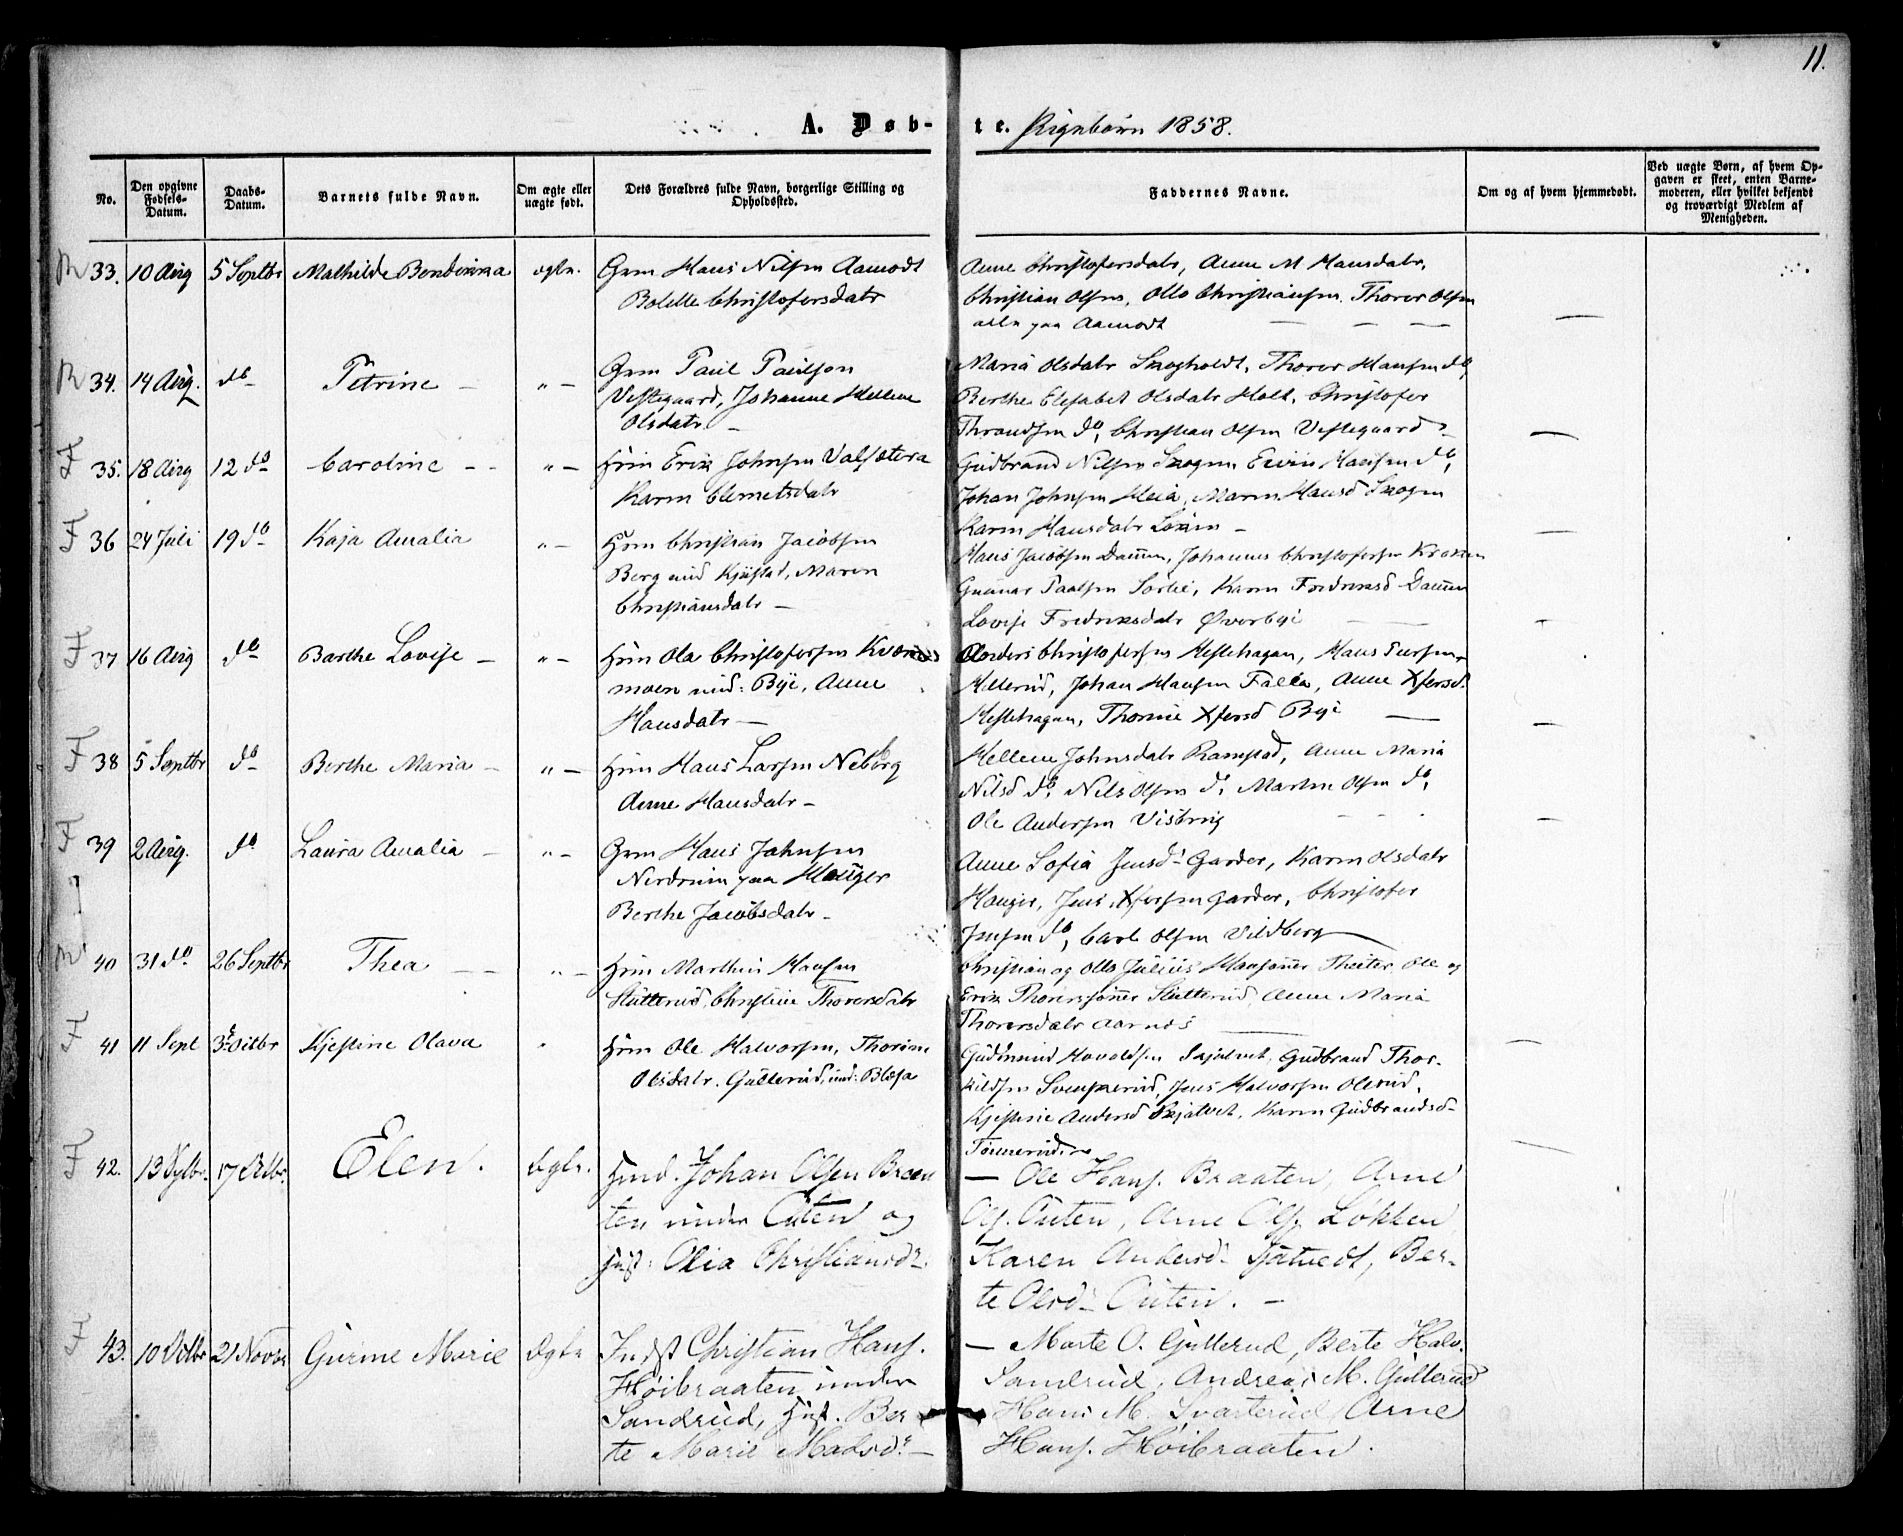 11.
A. Døb-te. Pigebørn 1858.
No.
Den opgivne Fødsels-Datum.
Daabs-Datum.
Barnets fulde Navn.
Om ægte eller uægte født.
Dets Forældres fulde Navn, borgerlige Stilling og Opholdssted.
Faddernes Navne.
Om og af hvem hjemmedøbt.
Ved uægte Børn, af hvem Opgaven er skeet, enten Barnemoderen, eller hvilket bekjendt og troværdigt Medlem af Menigheden.
33. 10 Aug 5 Septbr Mathilde Bendixina ægte.
Grm Hans Nilsen Aamodt
Bolette Christofersdatr
Anne Christofersdatr, Anne M Hansdatr,
Christian Olsen, Otto Christiansen, Thorer Olsen
alle paa Aamodt — — —
34. 14 Aug. do Petrine — " —
Grm Paul Paulsen
Vestegaard, Johanne Hellene
Olsdatr. —
Maria Olsdatr Skogholdt, Thorer Hansen do,
Berthe Elisabet Olsdatr Holt, Christofer
Thrandsen do, Christian Olsen Vestegaard
35. 18 Aug 12 do Caroline — — " —
Hmn Erik Johnsen Valsætera
Karen Clemetsdatr
Gudbrand Nilsen Skogen Even Hansen do,
Johan Johnsen Heia, Maren Hansd Skogen
Karen Hansdatr —
36 24 Juli 19 do Kaja Amalia " —
Hmn Christian Jacobsen
Berg und Kjustad, Maren
Christiansdatr —
Hans Jacobsen Dammen, Johannes Christofersen
Gunnar Paalsen Sørlie, Karen Fredriksd Dammen
Lovise Fredriksdatr Øverbye — —
37 16 Aug do Barthe Lovise — " —
Hmn Ola Christofersen Kværnes
moen und: Bye, Anne
Hansdatr —
Anders Christofersen Hestehagan, Hans
Hellerud, Johan Hansen Falla, Anne Xfersd.
Hestehagan, Thorine Xfersd Bye —
38 5 Septbr do Berthe Maria — " —
Hmn Hans Larsen Neborg
Anne Hansdatr —
Hellene Johnsdatr Ramstad, Anne Maria
Nilsd do, Nils Olsen do, Martin Olsen do,
Ole Andersen Visbrug
39 2 Aug. do Laura Amalia — " —
Grm Hans Johnsen
Nerdrum paa Hauger
Berthe Jacobsdatr —
Anne Sofia Jensd: Garder, Karen Olsdatr
Hauger, Jens Xfersen Garder, Christofer
Jensen do, Carl Olsen Vildberg
40 31 do 26 Septbr Thea — — " —
Hmn Marthin Hansen
Slutterud, Christine Thorersdatr
Christian og Otto Julius Hansønner Theiter, Ole og
Erik Thorersønner Slutterud, Anne Maria
Thorersdatr Aarnæs —
41 11 Sept 3 Octbr Kjestine Olava "
Hmn Ole Halvorsen, Thorine
Olsdatr. Gullerud, und: Blixa
Gudmund Havoldsen Skjatvet, Gudbrand Thor-
kildsen Svenkerud, Jens Halvorsen Olerud,
Kjestine Andersd Skjatvet, Karen Gudbrandsd
Tømmerud. —
42. 13 Sptbr. 17 Octbr. Elen. Ægte.
Hmd. Johan Olsen Braa
ten under Outen og
Hust: Olia Christiansd.
— Ole Hans. Braaten, Arne
Ols. Outen, Arne Ols. Løkken
Karen Andersd. Sjatvedt, Ber-
te Olsd. Outen. —
43. 10 Octbr 21 Novbr Gurine Marie Ægte
Indst Christian Hans.
Høibraaten under
Sandrud, Hust. Ber
te Marie Madsd. —
— Marte O. Gullerud, Berte Halv.
Sandrud, Andreas M. Gullerud
Hans M. Svarterud, Arne
Hans. Høibraaten.